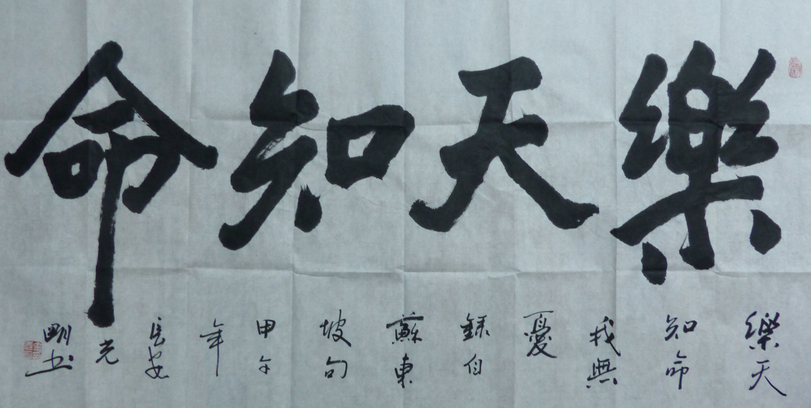 樂天知命
樂天
知命
我無
憂
録自
蘇東
坡句
甲午
年
長安
光
明书